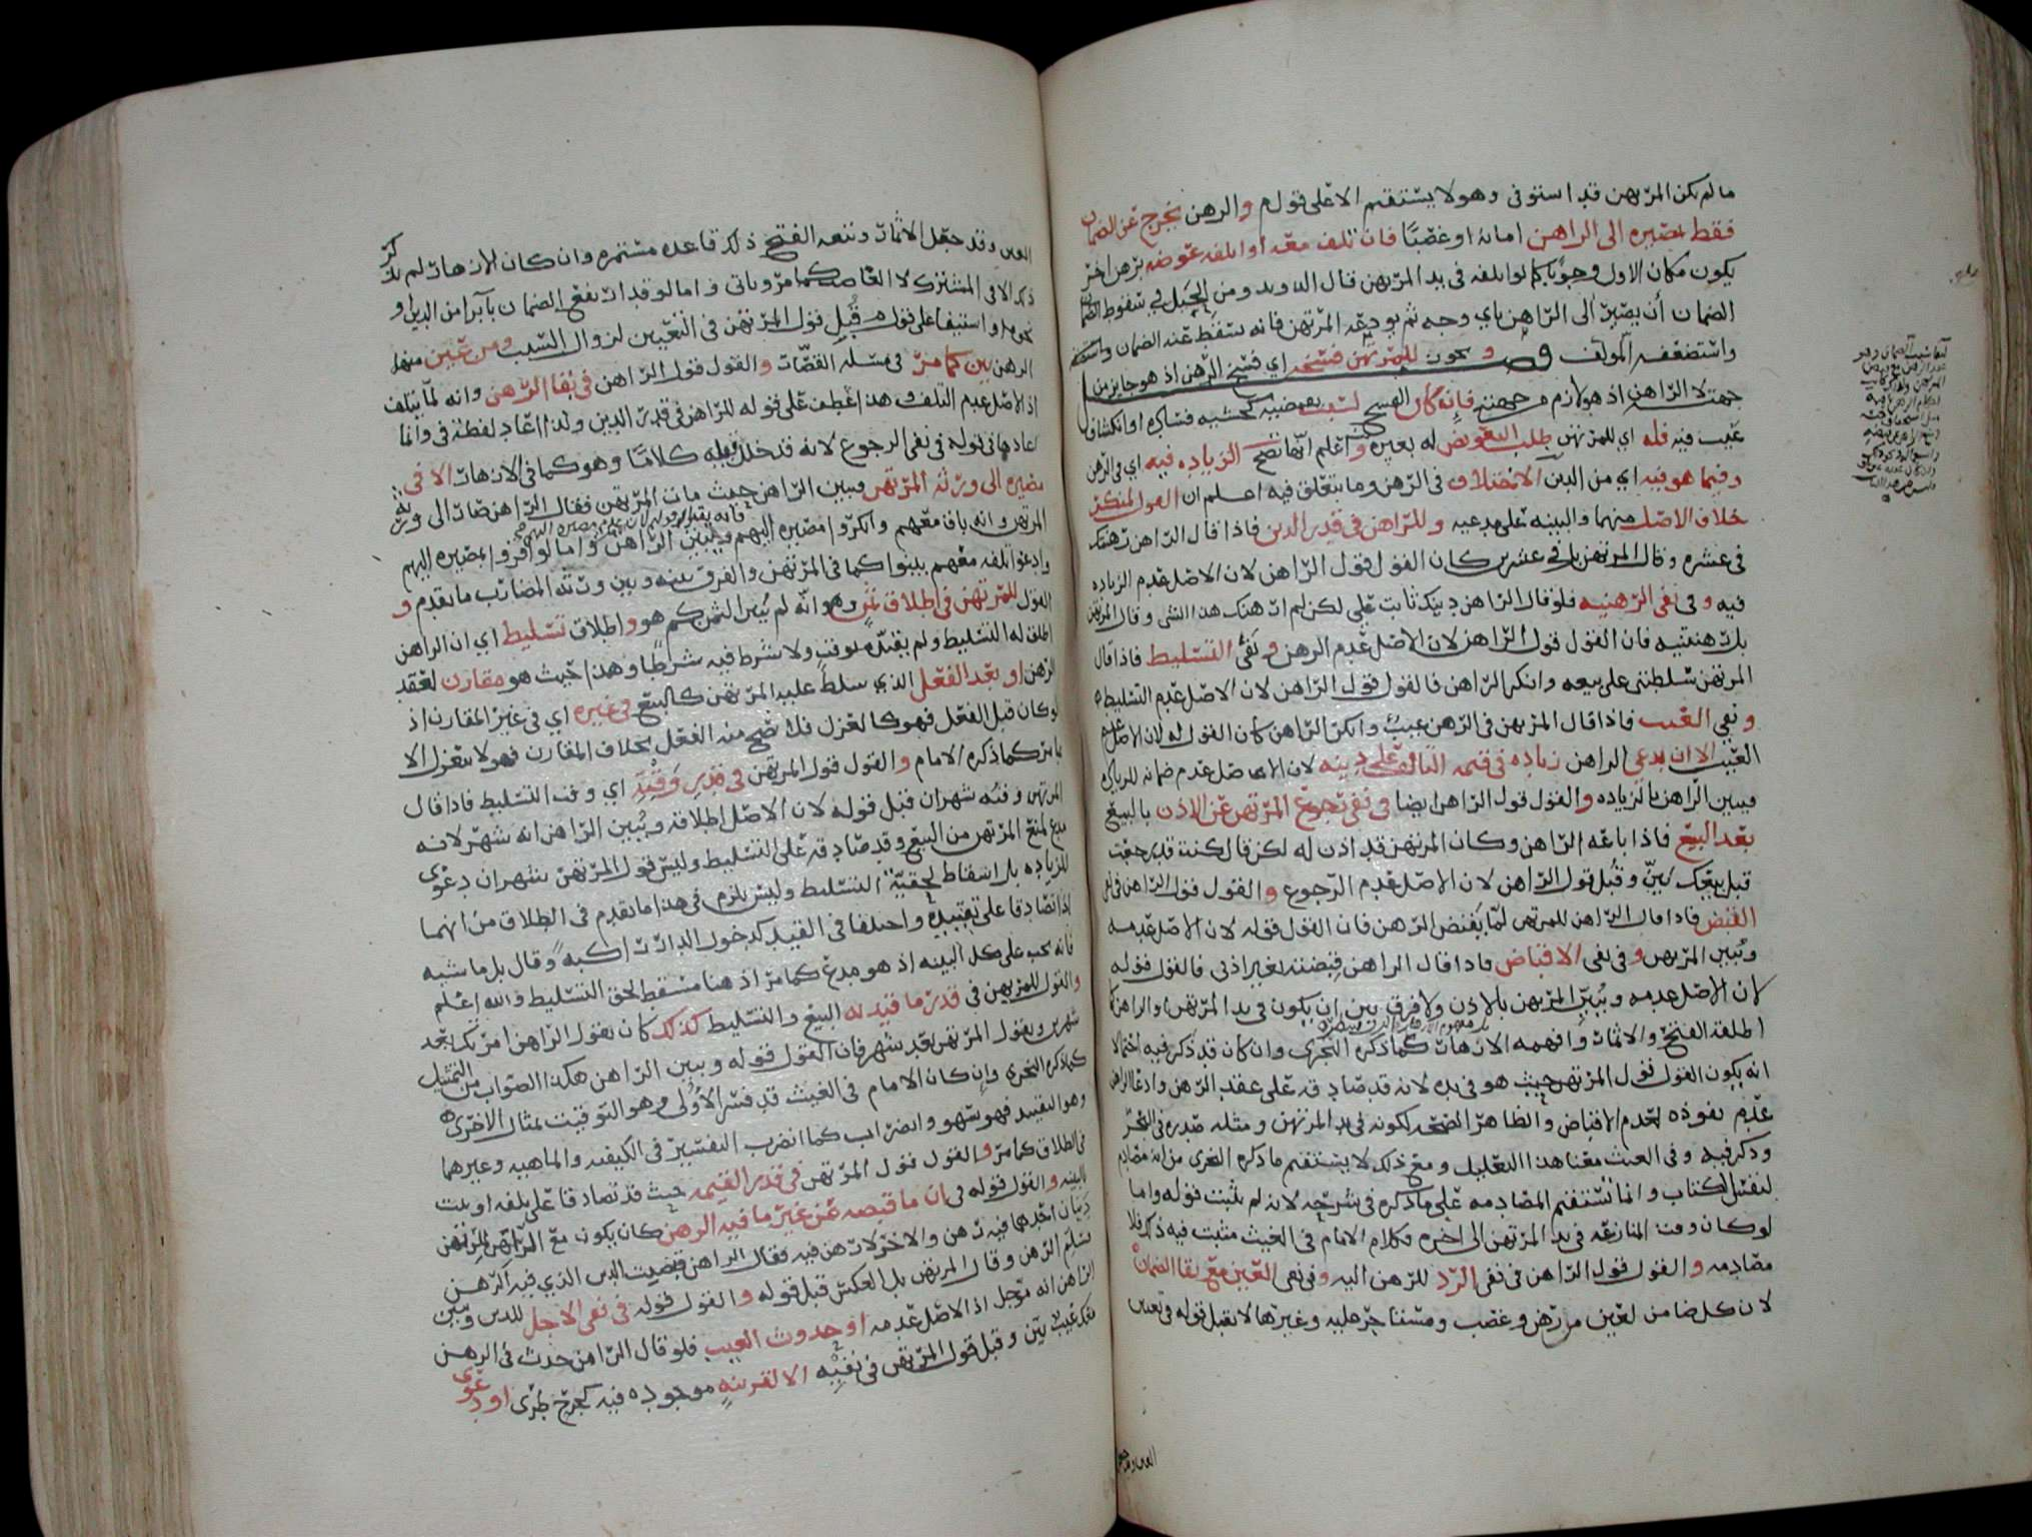 ما لم يكن المرتهن قد استوفى وهو لا يستقيم الا على قولهم والرهن يخرج عن الضمان
فقط بمصيره الى الراهن امانة او غصبًا فان تلف معه او اتلفه عوضه برهن اخر
يكون مكان الاول وجوبًا كما لو اتلفه في يد المرتهن قال ومن الحيل في سقوط الضمان
الضمان أن يصير الى الراهن باي وجه ثم يودعه المرتهن فانه يسقط عنه الضمان
واستضعفه المولف ويكون للمرتهن فسخه اي فسخ الرهن اذ هو جايز من
جهته لا الراهن اذ هو لازم من جهته فانه كان الفسخ لسبب كخشية فساده او انكشاف
عيب فيه فله اي للمرتهن طلب التعويض له بغيره واعلم انها تصح الزياده فيه اي في الرهن
وفيما هو فيه اي من الدين الاختلاف في الرهن وما يتعلق فيه اعلم ان القول لمنكر
خلاف الاصل منهما والبينه على مدعيه وللراهن في قدر الدين فاذا قال الراهن رهنتك
في عشره وقال المرتهن بل في عشرين كان القول قول الراهن لان الاصل عدم الزياده
فيه وفي نفي الرهنيه فلو قال الراهن دينك ثابت علي لكن لم ارهنك هذا الشي وقال المرتهن
بل رهنتنيه فان القول قول الراهن لان الاصل عدم الرهن ونفي التسليط فاذا قال
المرتهن سلطتني على بيعه وانكر الراهن فالقول قول الراهن لان الاصل عدم التسليط
ونفي العيب فاذا قال المرتهن في الرهن عيب وانكر الراهن كان القول له لان الاصل عدم
العيب الا ان يدعي الراهن زياده في قيمه التالف على دينه لان الاصل عدم ضمانه للزياده
فيبين الراهن بالزياده والقول قول الراهن ايضا في نفي رجوع المرتهن عن الاذن بالبيع
بعد البيع فاذا باعه الراهن وكان المرتهن قد اذن له لكن قال كنت قد رجعت
قبل بيعك بيّن وقُبل قول الراهن لان الاصل عدم الرجوع والقول قول الراهن في نفي
القبض فاذا قال الراهن للمرتهن لما يقبض الرهن فان القول قوله لان الاصل عدمه
ويُبين المرتهن وفي نفي الاقباض فاذا قال الراهن قبضته بغير اذني فالقول قوله
لان الاصل عدمه ويُبين المرتهن بالاذن ولا فرق بين ان يكون في يد المرتهن او الراهن
اطلقه الفتح والاثمات وافهمه الازهار كما ذكره النجري وان كان قد ذكر فيه احتمالا
انه يكون القول قول المرتهن حيث هو في يده لانه قد صادقه على عقد الرهن وادعا الراهن
عدم نفوذه لعدم الاقباض والظاهر الصحه لكونه في يد المرتهن ومثله صدره في البحر
وذكر فيه وفي الغيث معنا هذا التعليل ومع ذلك لا يستقيم ما ذكره النجري من انه مصادم
لنفس الكتاب وانما تستقيم المصادمه على ما ذكره في شرحه لانه لم يثبت قوله واما
لو كان وقت المنازعه في يد المرتهن الى اخره وكلام الامام في الغيث مثبت فيه ذلك فلا
مصادمه والقول قول الراهن في نفي الرد للرهن اليه وفي نفي العين مع بقا الضمان
لان كل ضامن لعين من رهن وغصب ومستاجر عليه وغيرها لا يقبل قوله في تعيين
العين وقد جعل
العين وقد جعل الاثمات وتبعه الفتح ذلك قاعده مستمره وان كان الازهار لم يذكر
ذلك الا في المشترك لا الغاصب كما مر وياتي واما لو قد ارتفع الضمان بابرا من الدين او
نحوه او استيفا على قول قُبل قول المرتهن في التعيين لزوال السبب ومن عيّن منهما
الرهن بيّن كما مرّ في مسله القصّار والقول قول الراهن في بقا الرهن وانه لمّا يتلف
اذ الاصل عدم التلف وهذا عُطف على قوله للراهن في قدر الدين ولذا اعاد لفظة في وانما
اعادها في قوله في نفي الرجوع لانه قد خلل قبله كلامًا وهو كما في الازهار الا في
مصيره الى ورثة المرتهن فيبين الراهن حيث مات المرتهن فقال الراهن صار الى ورثه
المرتهن وانه باق معهم وانكروا مصيره اليهم فيبين الراهن واما لو اقروا بمصيره اليهم
وادعوا تلفه معهم بينوا كما في المرتهن والفرق بينه وبين ورثه المضارب ما تقدم و
القول للمرتهن في اطلاق ثمن وهو انه لم يُبين الثمن كم هو واطلاق تسليط اي ان الراهن
اطلق له التسليط ولم يقيده بوقت ولا شرط فيه شرطًا وهذا حيث هو مقارن لعقد
الرهن او بعد الفعل الذي سلط عليه المرتهن كالبيع في غيره اي في غير المقارن اذ
لو كان قبل الفعل فهو كالعزل فلا صح منه الفعل بخلاف المقارن فهو لا ينعزل الا
كما ذكره الامام والقول قول المرتهن في قدر وَقْتِهِ اي وقت التسليط فاذا قال
المرتهن وقته شهران قبل قوله لان الاصل اطلاقه ويُبين الراهن انه شهر لانه
مدع لمنع المرتهن من البيع وقد صادقه على التسليط وليس قول المرتهن شهران دعوى
للزياده بل اسقاط لحقيّة التسليط وليس يلزم في هذا ما تقدم في الطلاق من انهما
اذا تصادقا على تقييده واختلفا في القيد كدخول الدار راكبة وقال بل ماشيه
فانه يجب على كل البينه اذ هو مدع كما مر اذ هنا مسقط لحق التسليط والله اعلم
والقول للمرتهن في قدر ما قيد به البيع والتسليط كذلك كان يقول الراهن امرتك بعد
شهرين ويقول المرتهن بعد شهر فان القول قوله ويبين الراهن هكذا الصواب من التمثيل
كما ذكره النجري وان كان الامام في الغيث قد فسر الاولى وهو التوقيت بمثال الاخرى
وهو التقييد فهو سهو واضراب كما اضرب التفسير في الكيفيه والماهيه وغيرهما
في الطلاق كما مر والقول قول المرتهن في قدر القيمه حيث قد تصادقا على تلفه او ثبت
بالبينه والقول قوله في ان ما قبضه عن غير ما فيه الرهن كان يكون مع الراهن للمرتهن
دينان احدهما فيه رهن والاخر لا رهن فيه فقال الراهن قبضت الدين الذي فيه الرهن
بسلم الرهن وقال المرتهن بل العكس قبل قوله والقول قوله في نفي الاجل للدين ويبين
الراهن انه مؤجل اذ الاصل عدمه او حدوث العيب فلو قال الراهن حدث في الرهن
معك عيب بيّن وقبل قول المرتهن في نفيه الا لقرينهٍ موجوده فيه كجرح طرى او دعوى